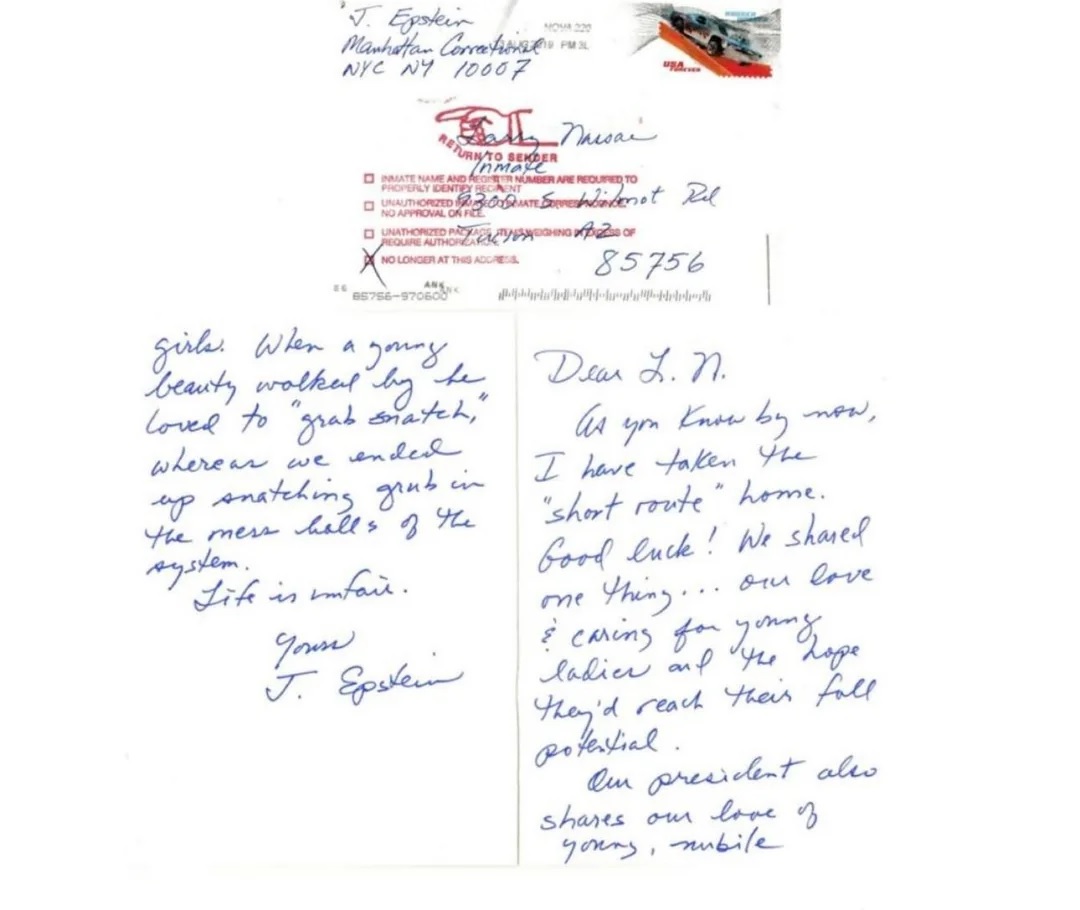 J. Epstein
Manhattan Correctional
NYC NY 10007
NOVA 220
AUG 2019 PM 3L
USA
FOREVER
Larry Nassar
RETURN TO SENDER
Inmate
INMATE NAME AND REGISTER NUMBER ARE REQUIRED TO
PROPERLY IDENTIFY RECIPIENT
9300 S Wilmot Rd
UNAUTHORIZED INMATE TO INMATE CORRESPONDENCE
NO APPROVAL ON FILE.
Tucson AZ
UNATHORIZED PACKAGE ITEMS WEIGHING IN EXCESS OF
REQUIRE AUTHORIZATION.
X NO LONGER AT THIS ADDRESS.
85756
ANK
85756-970600
Dear L. N.
As you know by now,
I have taken the
"short route" home.
Good luck! We shared
one thing... our love
& caring for young
ladies and the hope
they'd reach their full
potential.
Our president also
shares our love of
young, nubile
girls. When a young
beauty walked by he
loved to "grab snatch,"
whereas we ended
up snatching grub in
the mess halls of the
system.
Life is unfair.
Yours
J. Epstein